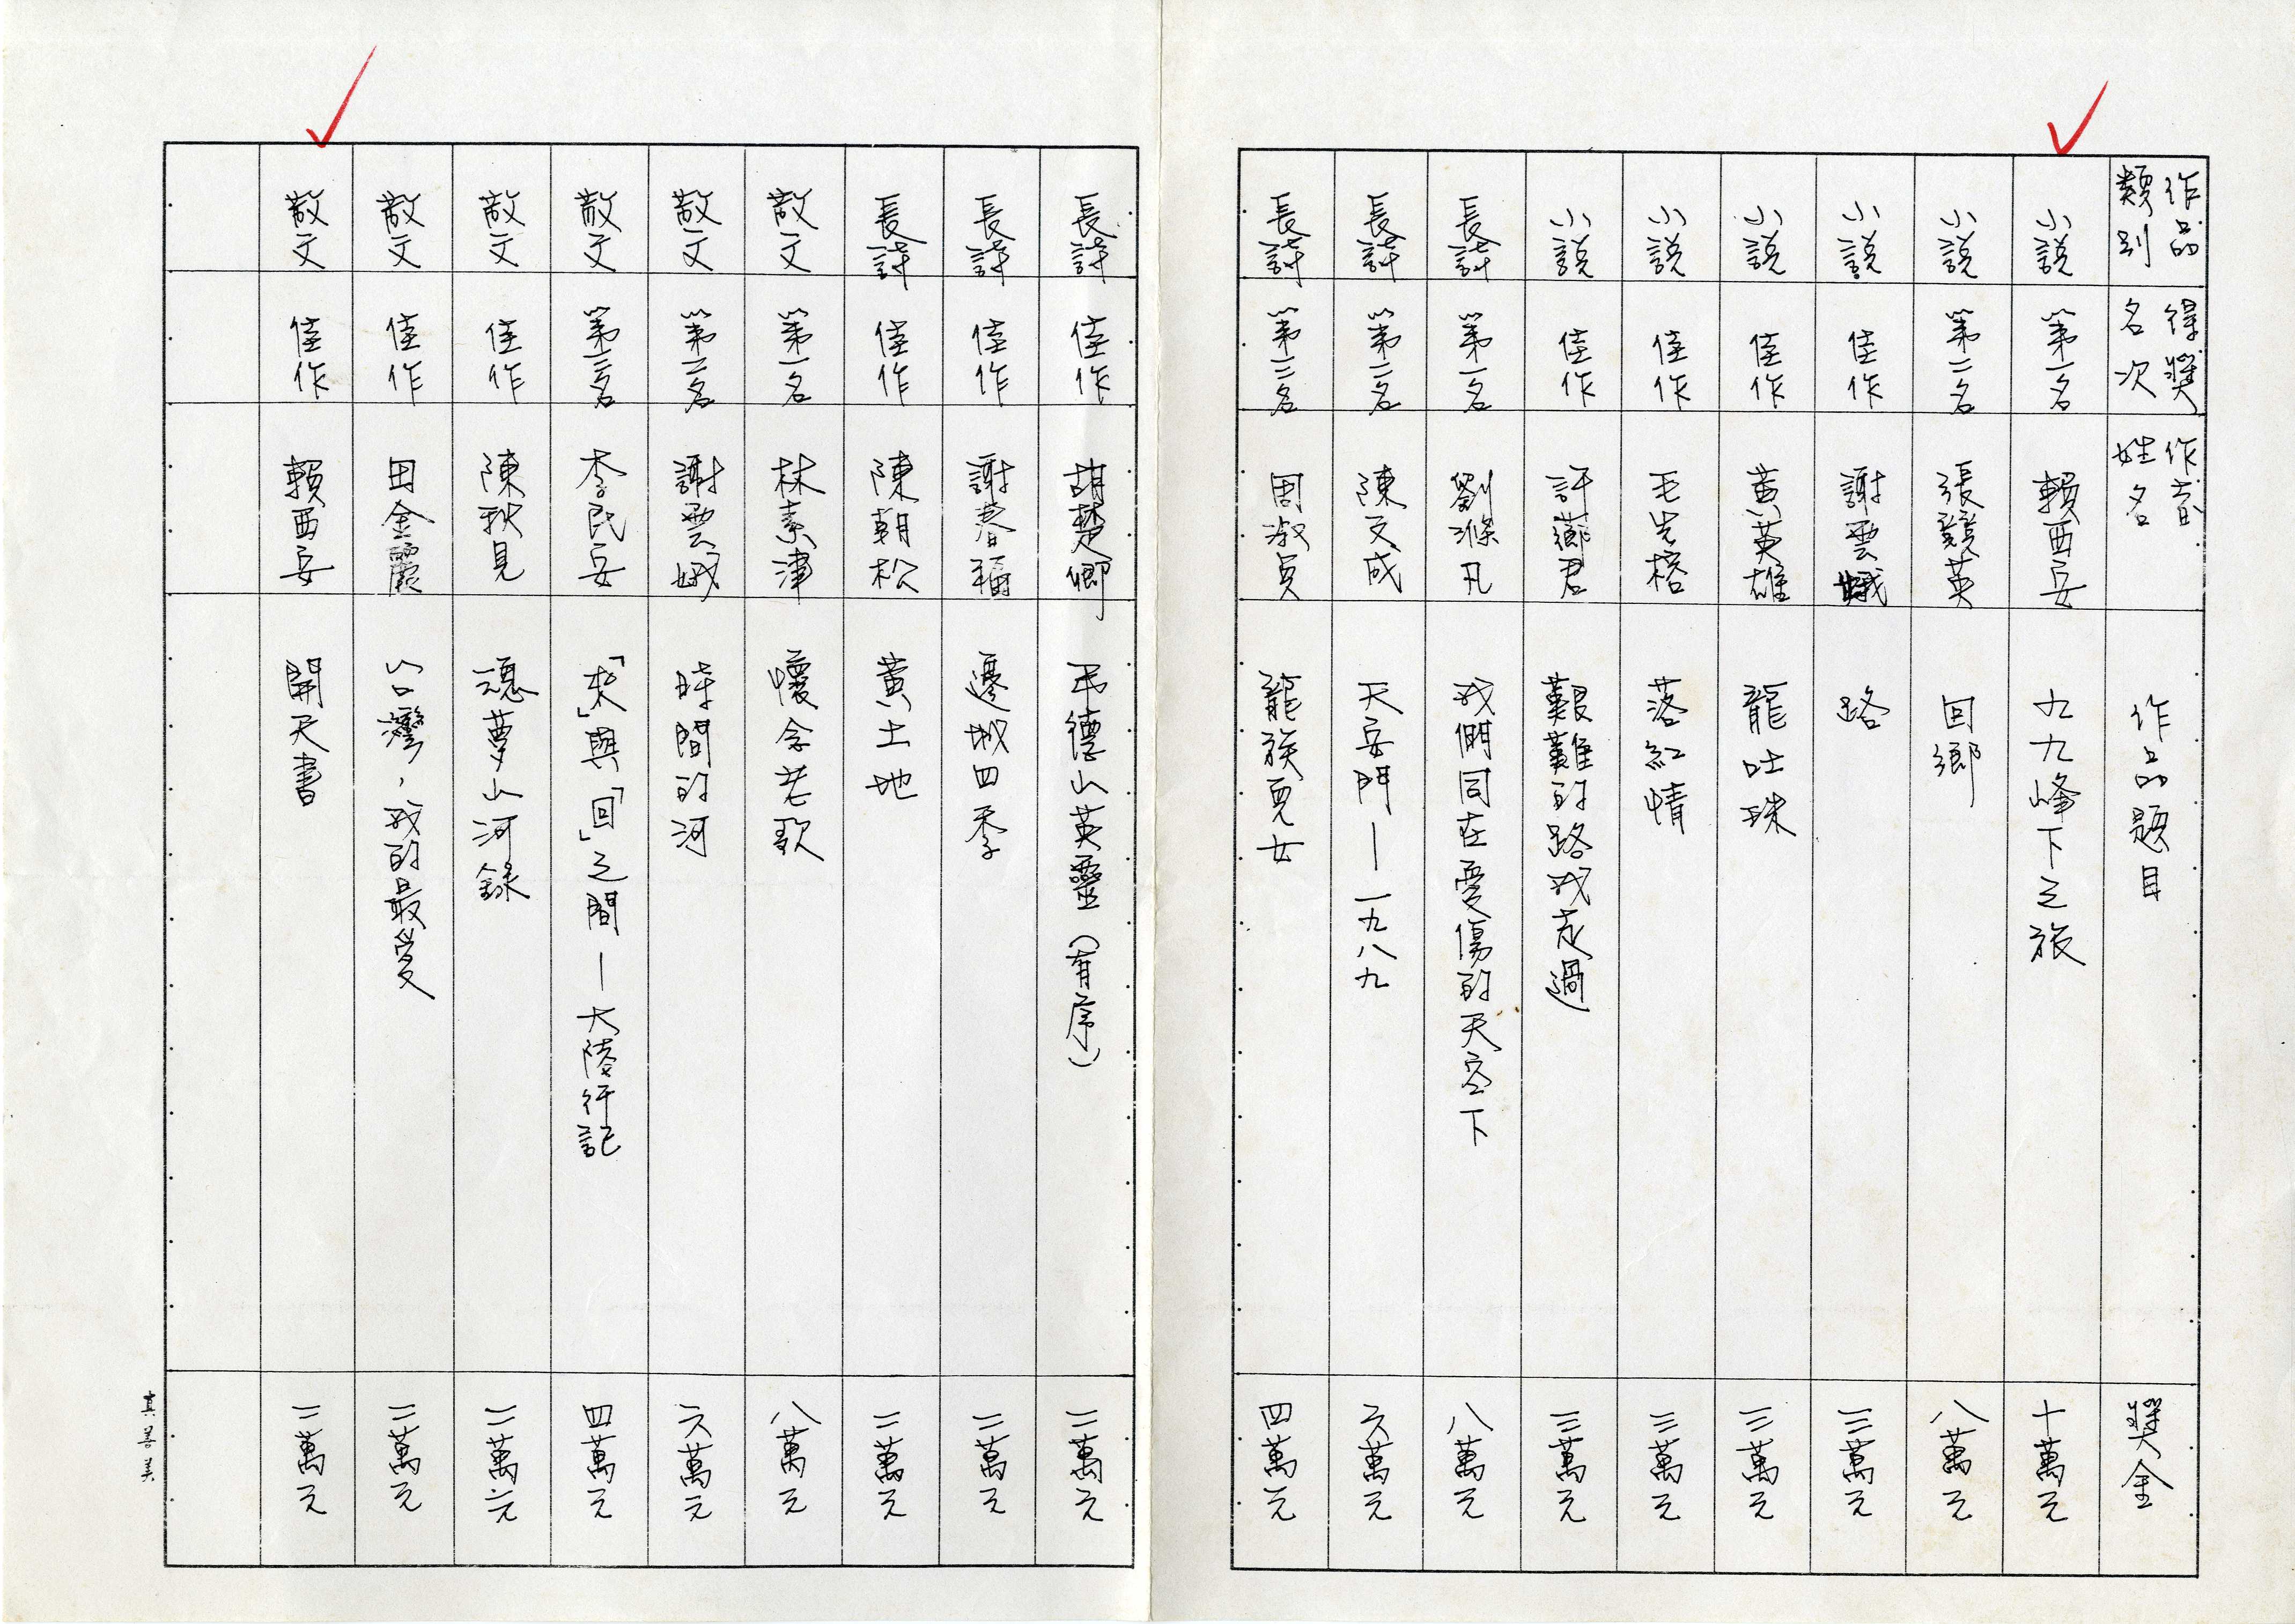 作品類別 得獎名次 作者姓名 作品題目 獎金
小說 第一名 賴西安 九九峰下之旅 十萬元
小說 第二名 張競英 回鄉 八萬元
小說 佳作 謝雲娥 路 三萬元
小說 佳作 黃英雄 龍吐珠 三萬元
小說 佳作 毛先榕 落紅情 三萬元
小說 佳作 許薌君 艱難的路我走過 三萬元
長詩 第一名 劉滌凡 我們同在憂傷的天空下 八萬元
長詩 第二名 陳文成 天安門—一九八九 六萬元
長詩 第三名 周淑貞 龍族兒女 四萬元
長詩 佳作 胡楚卿 民德山英靈(有序) 二萬元
長詩 佳作 謝春福 邊城四季 二萬元
長詩 佳作 陳朝松 黃土地 二萬元
散文 第一名 林素津 懷念老歌 八萬元
散文 第二名 謝雲娥 時間的河 六萬元
散文 第三名 李民安 「來」與「回」之間—大陸行記 四萬元
散文 佳作 陳秋見 魂夢山河錄 二萬元
散文 佳作 田金霞 台灣,我的最愛 二萬元
散文 佳作 賴西安 開天書 二萬元
真善美